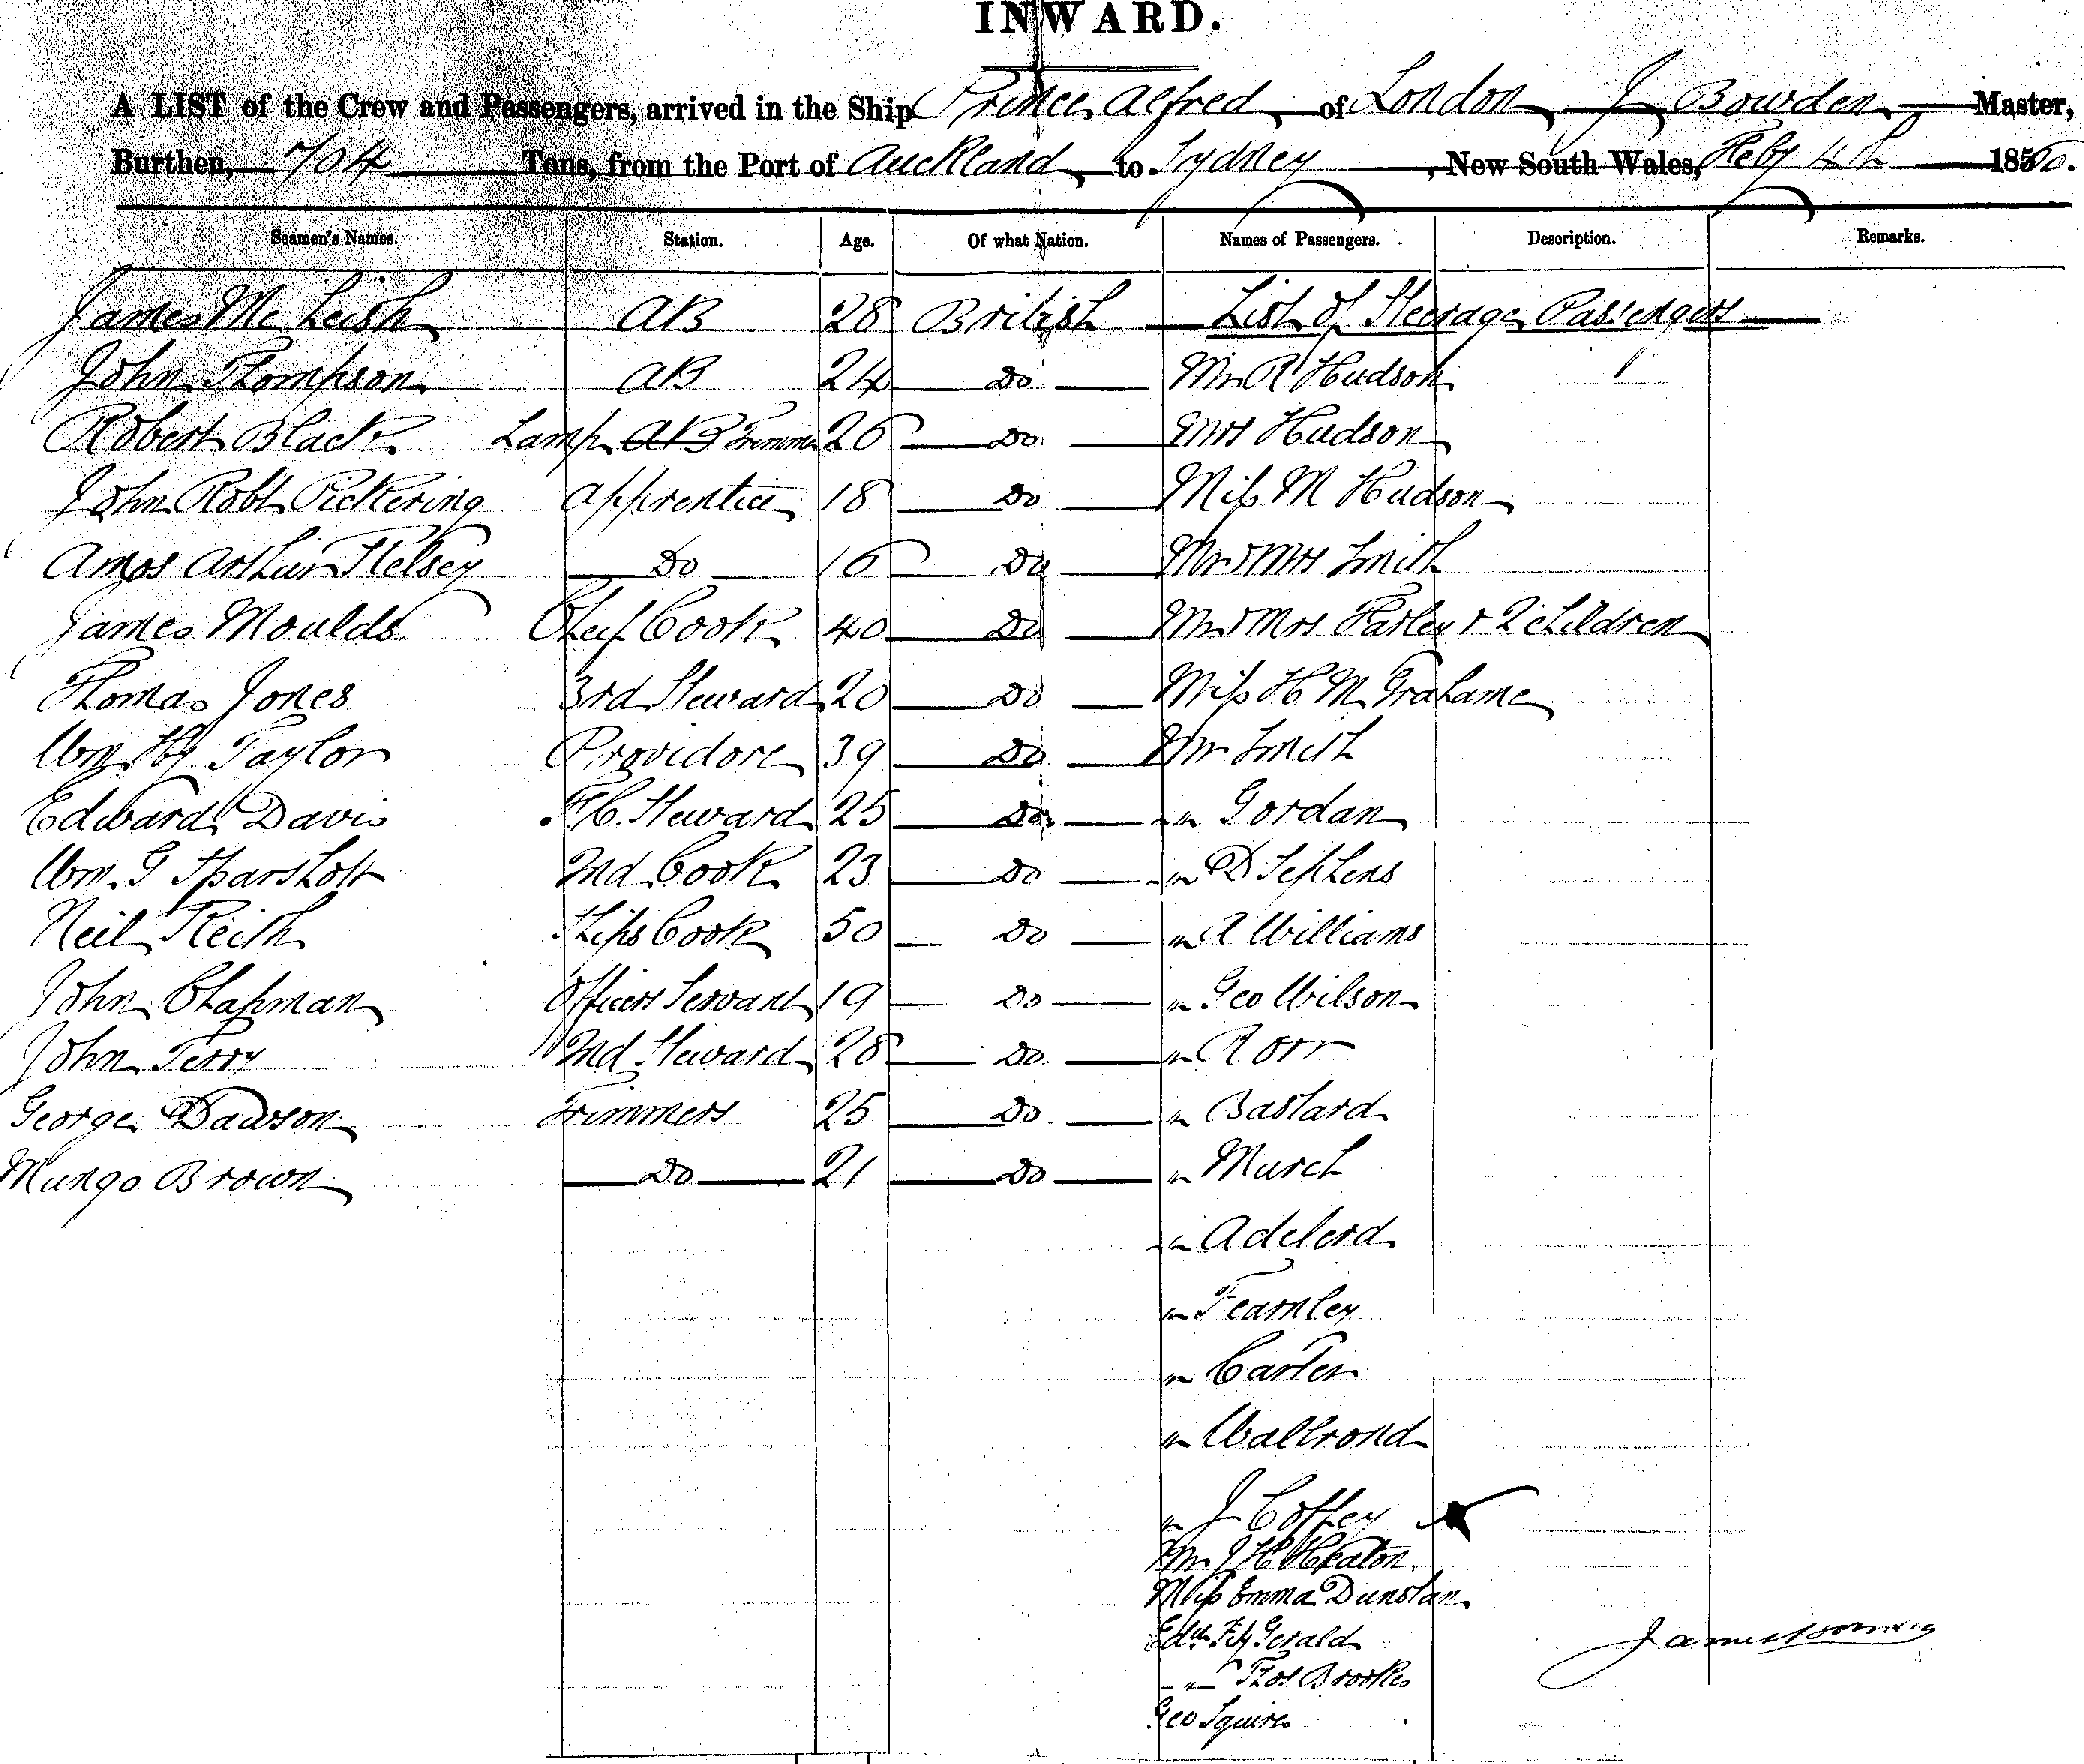 INWARD.
A LIST of the Crew and Passengers, arrived in the Ship Prince Alfred of London, J Bowden Master,
Burthen, 704 Tons, from the Port of Auckland to Sydney, New South Wales, Feby 4th 1860.
Seamen's Names. Station. Age. Of what Nation. Names of Passengers. Description. Remarks.
James Mc Leish AB 28 British List of Steerage Passengers
John Thompson AB 24 Do Mr R Hudson 1
Robert Black Lamp AB Trimmer 26 Do Mrs Hudson
John Robt Pickering apprentice 18 Do Miss M Hudson
Amos Arthur Kelsey Do 16 Do Mr & Mrs Smith
James Moulds Chief Cook 40 Do Mr & Mrs Farley & 2 children
Thomas Jones 3rd Steward 20 Do Miss H M Grahame
Wm Hy Taylor Providore 39 Do Mr Smith
Edward Davis F.C. Steward 25 Do " Gordan
Wm. G Sparshott 2nd Cook 23 Do " D Sephens
Neil Keith Ships Cook 50 Do " R Williams
John Chapman Officers Servant 19 Do " Geo Wilson
John Terry 2nd Steward 28 Do " Rorr
George Dawson Trimmers 25 Do " Bastard
Mungo Brown Do 21 Do " March
" Adelerd
" Fearnley
" Carter
" Wallrond
" J Coffey
Mr J H Heaton
Miss Emma Dunstan
Edwd FitzGerald
" Thos Brookes
Geo Squires